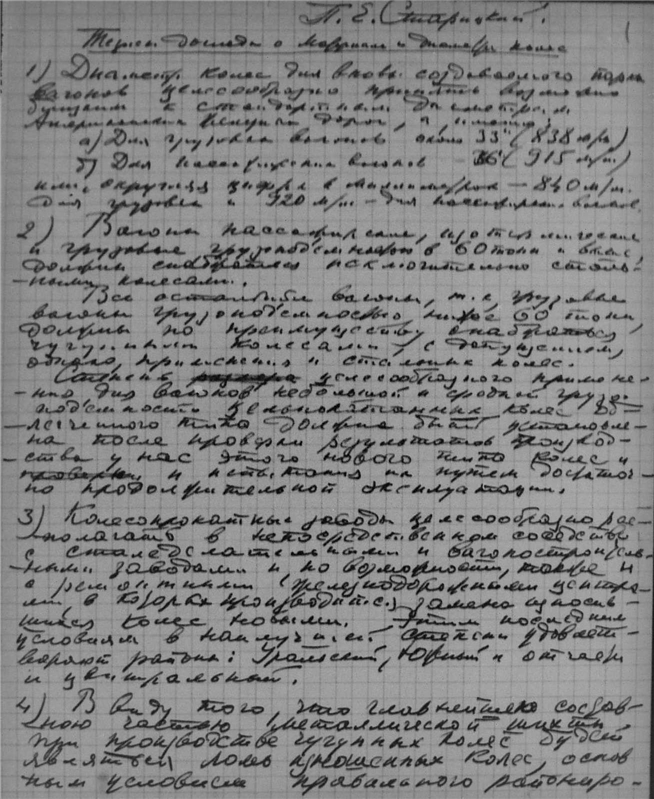 П. Е.
1
Тезисы доклада о материале и диаметре колес
1) Диаметр колес для вновь создаваемого парка
вагонов целесообразно принять возможно
к стандартным диаметрам
Американских дорог, а именно:
а) Для грузовых вагонов около 33" (838 м/м)
б) Для пассажирских вагонов 36" (915 м/м)
или, округляя цифры в миллиметрах — 840 м/м.
для грузовых и 920 м/м — для пассажирских вагонов.
2) Вагоны пассажирские, изотермические
и грузовые грузоподъемностью в 60 тонн и выше,
должны снабжаться исключительно сталь-
-ными колесами.
Все остальные вагоны, т. е. грузовые
вагоны грузоподъемностью ниже 60 тонн,
должны по преимуществу снабжаться
чугунными колесами, с допущением,
однако, применения и стальных колес.
Степень целесообразного примене-
-ния для вагонов небольшой и средней грузо-
подъемности цельнокатанных колес об-
-легченного типа должна быть установле-
на после проверки результатов производ-
-ства у нас этого нового типа колес и
проверки и испытания их путем достаточ-
но продолжительной эксплуатации.
3) Колесопрокатные заводы целесообразно рас-
-полагать в непосредственном соседстве
с сталеделательными и вагоностроитель-
-ными заводами и по возможности, также и
с ремонтными железнодорожными центра-
ми, в которых производится замена износив-
шихся колес новыми. Этим последним
условиям в наилучшей степени удовлет-
воряют районы: Уральский, Южный и отчасти
и центральный.
4) В виду того, что главнейшею состав-
-ною частью металлической шихты
при производстве чугунных колес будет
являться ломь изношенных колес, основ
ным условием правильного райониро-